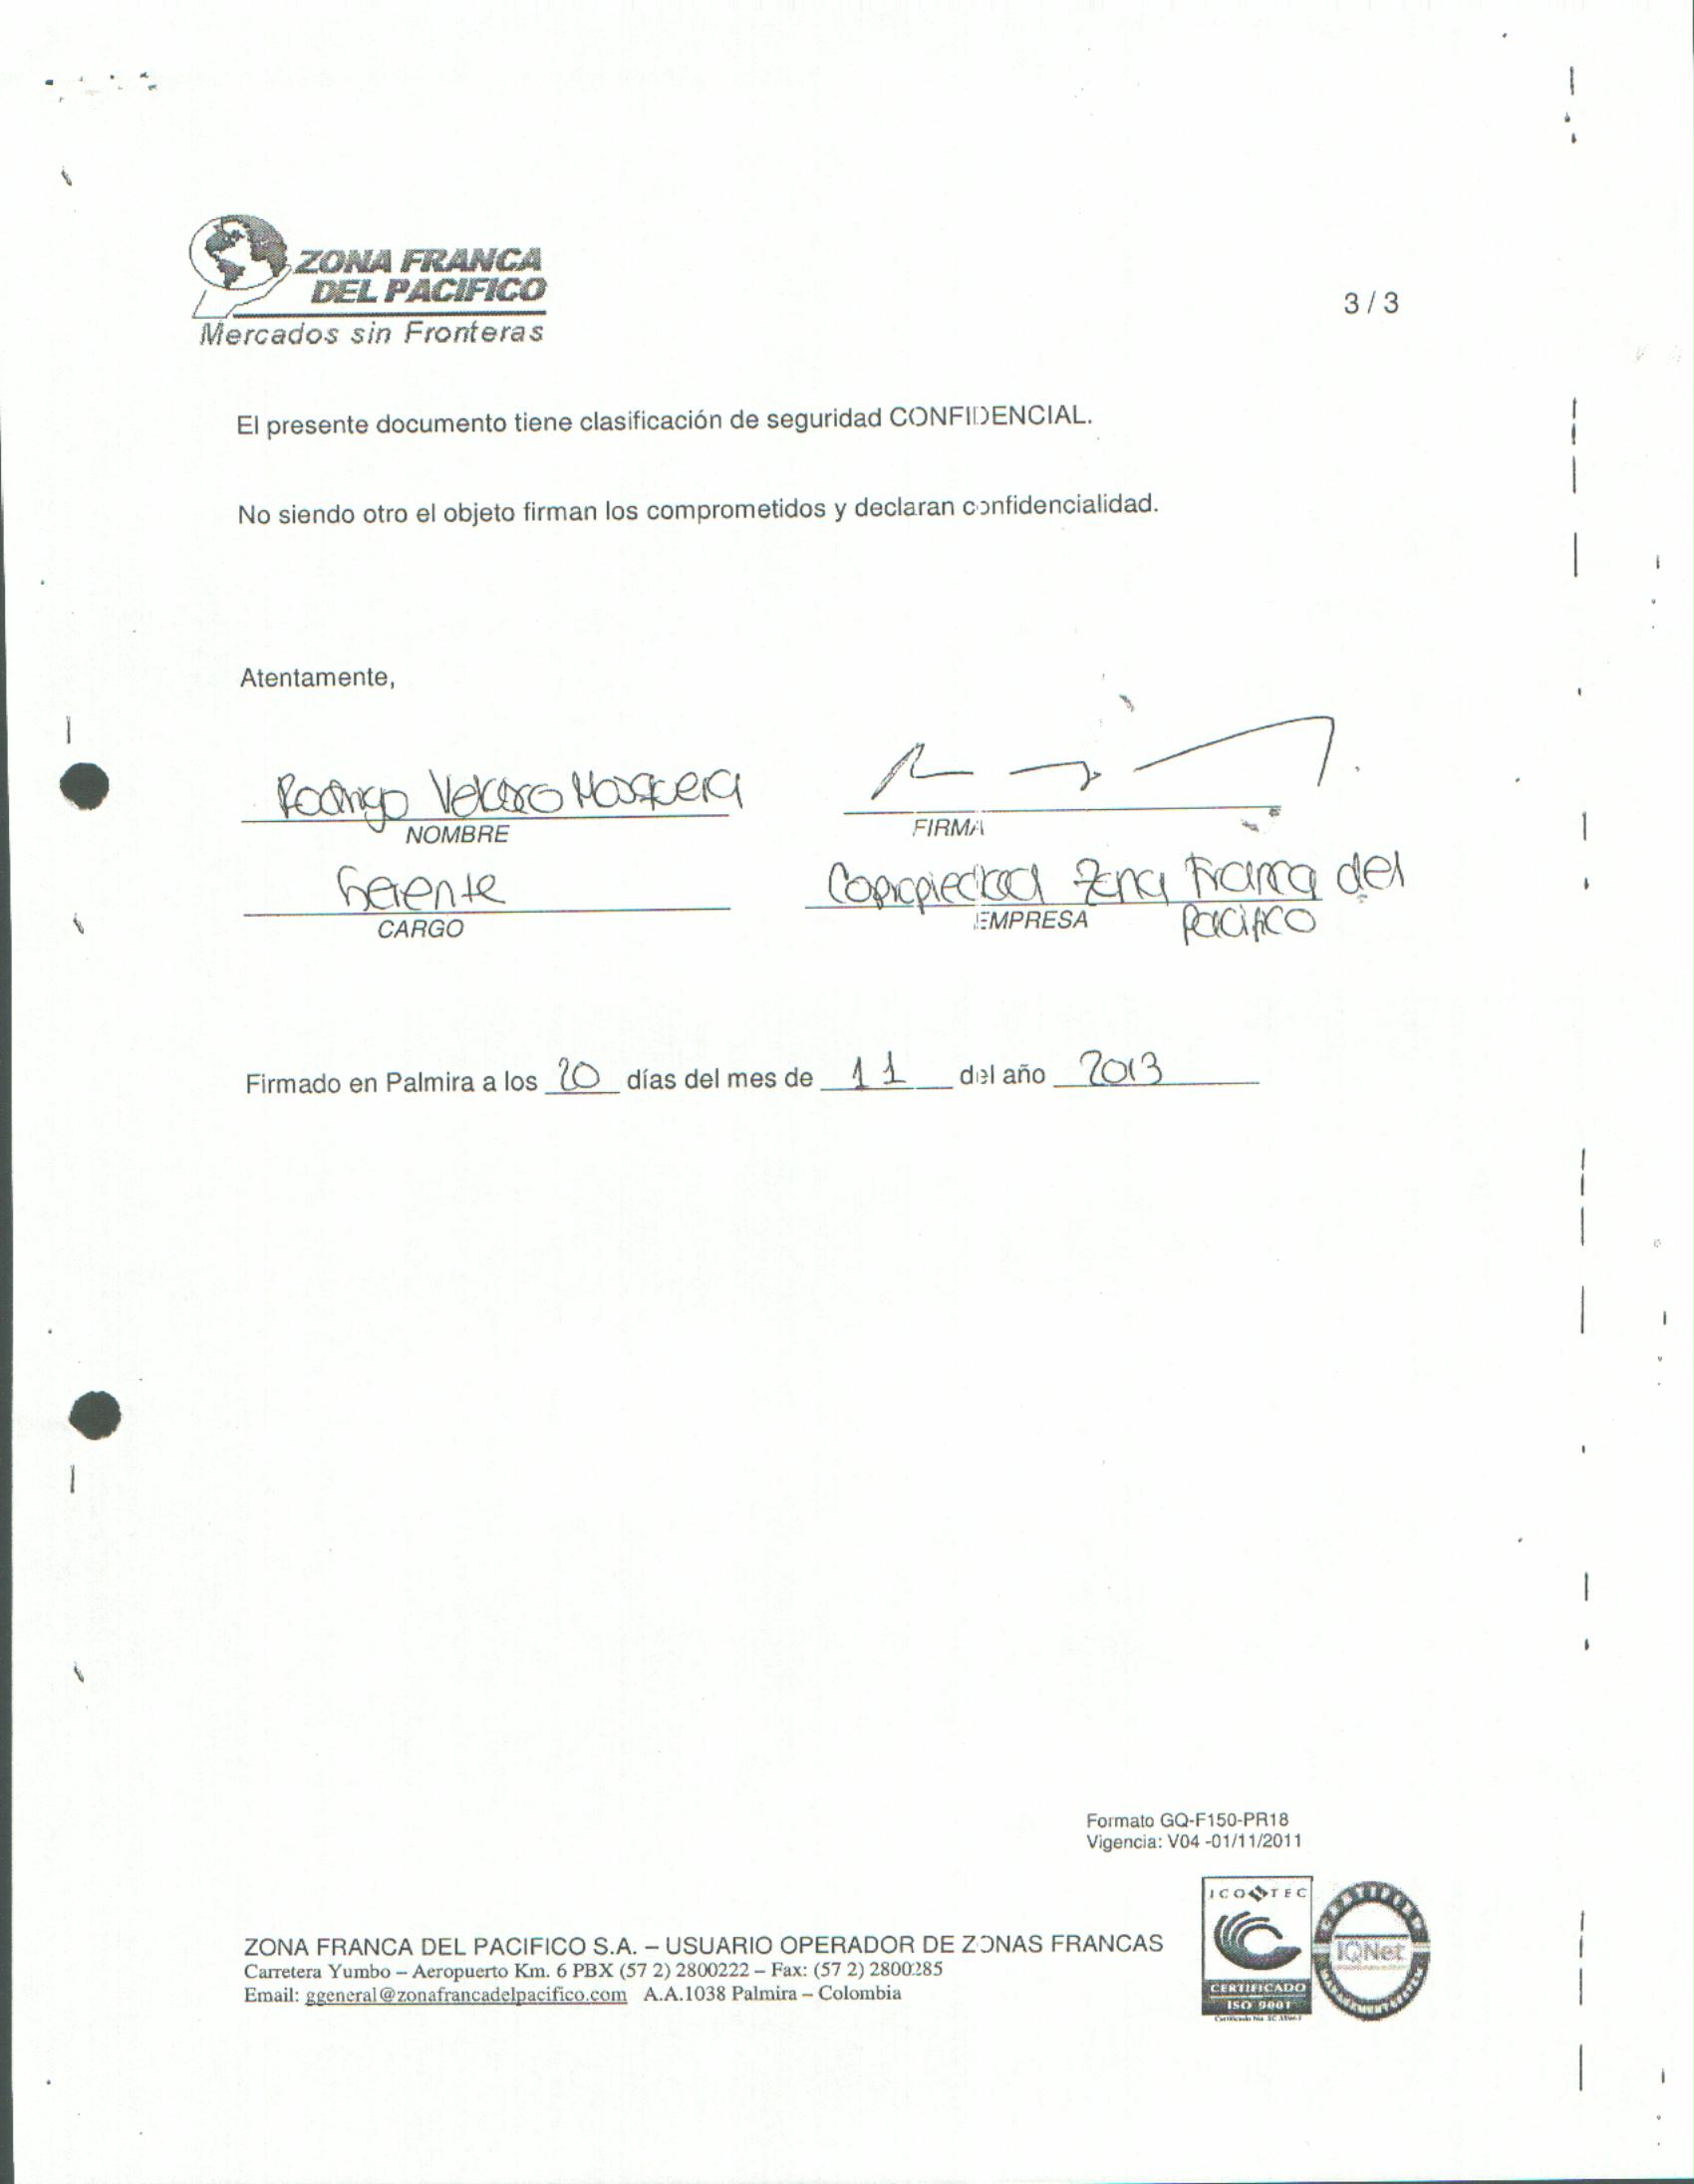 ZONA FRANCA
DEL PACIFICO
Mercados sin Fronteras
3 / 3
El presente documento tiene clasificación de seguridad CONFIDENCIAL.
No siendo otro el objeto firman los comprometidos y declaran confidencialidad.
Atentamente,
Rodrigo Velasco Mosquera
NOMBRE
FIRMA
Gerente
CARGO
Copropiedad Zona Franca del
EMPRESA
Pacifico
Firmado en Palmira a los 20 días del mes de 11 del año 2013
Formato GQ-F150-PR18
Vigencia: V04 -01/11/2011
ICONTEC
IQNet
CERTIFICADO
ISO 9001
ZONA FRANCA DEL PACIFICO S.A. – USUARIO OPERADOR DE ZONAS FRANCAS
Carretera Yumbo – Aeropuerto Km. 6 PBX (57 2) 2800222 – Fax: (57 2) 2800285
Email: ggeneral@zonafrancadelpacifico.com A.A.1038 Palmira – Colombia